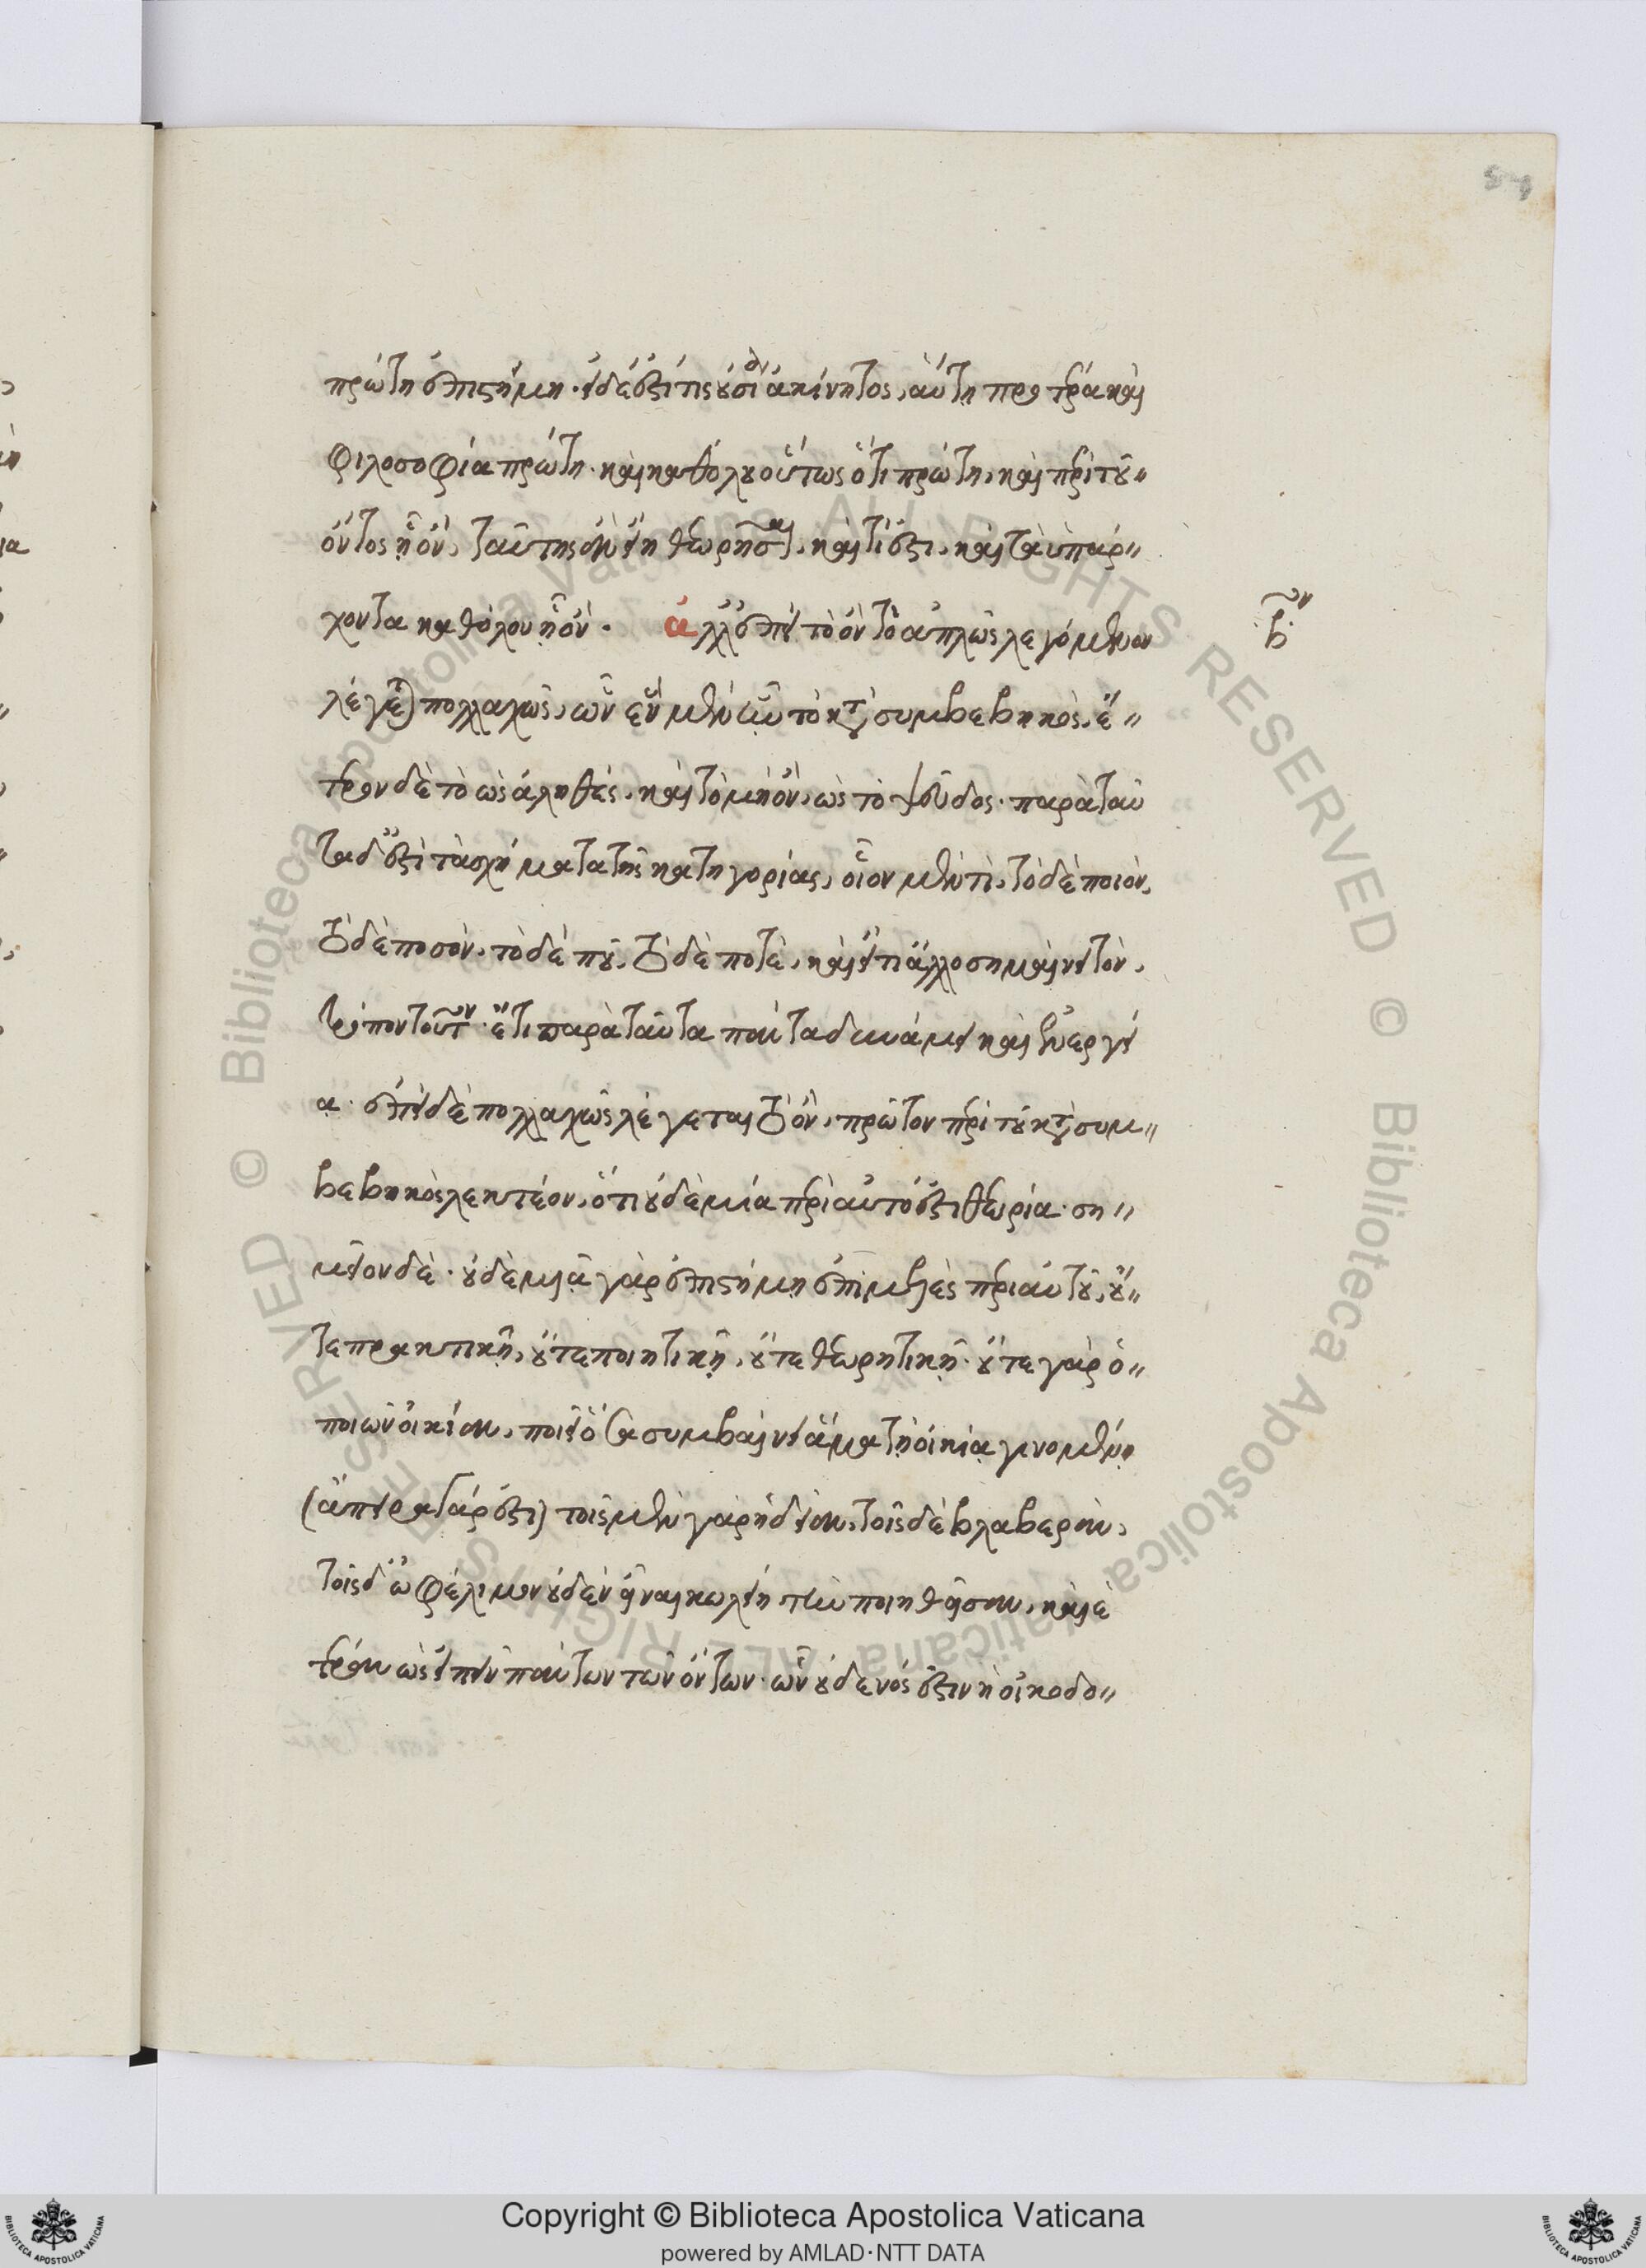 54
πρώτη ἐπιστήμη· εἰ δέ ἐστί τις οὐσία ἀκίνητος, αὕτη προτέρα καὶ
φιλοσοφία πρώτη· καὶ καθόλου οὕτως ὅτι πρώτη, καὶ περὶ τοῦ
ὄντος ᾗ ὄν, ταύτης ἂν εἴη θεωρῆσαι, καὶ τί ἐστι, καὶ τὰ ὑπάρ〃
χοντα καθόλου ᾗ ὄν· ἀλλ' ἐπεὶ τὸ ὂν τὸ ἁπλῶς λεγόμενον
β ον
λέγεται πολλαχῶς, ὧν ἓν μὲν ἦν τὸ κατὰ συμβεβηκός, ἕ〃
τερον δὲ τὸ ὡς ἀληθές, καὶ τὸ μὴ ὄν, ὡς τὸ ψεῦδος· παρὰ ταῦ
τα δ' ἐστὶ τὰ σχήματα τῆς κατηγορίας, οἷον μὲν τί, τὸ δὲ ποιόν,
τὸ δὲ ποσόν, τὸ δὲ ποῦ, τὸ δὲ ποτὲ, καὶ εἴ τι ἄλλο σημαίνει τὸν
τρόπον τοῦτον· ἔτι παρὰ ταῦτα πάντα δυνάμει καὶ ἐνεργεί
α· ἐπεὶ δὲ πολλαχῶς λέγεται τὸ ὄν, πρῶτον περὶ τοῦ κατὰ συμ〃
βεβηκὸς λεκτέον, ὅτι οὐδεμία περὶ αὐτό ἐστι θεωρία· ση〃
μεῖον δὲ· οὐδεμιᾷ γὰρ ἐπιστήμῃ ἐπιμελὲς περὶ αὐτοῦ, οὔ〃
τε πρακτικῇ, οὔτε ποιητικῇ, οὔτε θεωρητικῇ· οὔτε γὰρ ὁ〃
ποιῶν οἰκίαν, ποιεῖ ὅσα συμβαίνει ἅμα τῇ οἰκίᾳ γινομένῃ
(ἄπειρα γάρ ἐστι) τοῖς μὲν γὰρ ἡδεῖαν, τοῖς δὲ βλαβεράν,
τοῖς δ' ὠφέλιμον οὐδὲν εἶναι κωλύει τὴν ποιηθεῖσαν, καὶ ἑ
τέραν ὡς εἰπεῖν πάντων τῶν ὄντων· ὧν οὐδενός ἐστιν ἡ οἰκοδο〃
Copyright © Biblioteca Apostolica Vaticana
powered by AMLAD·NTT DATA